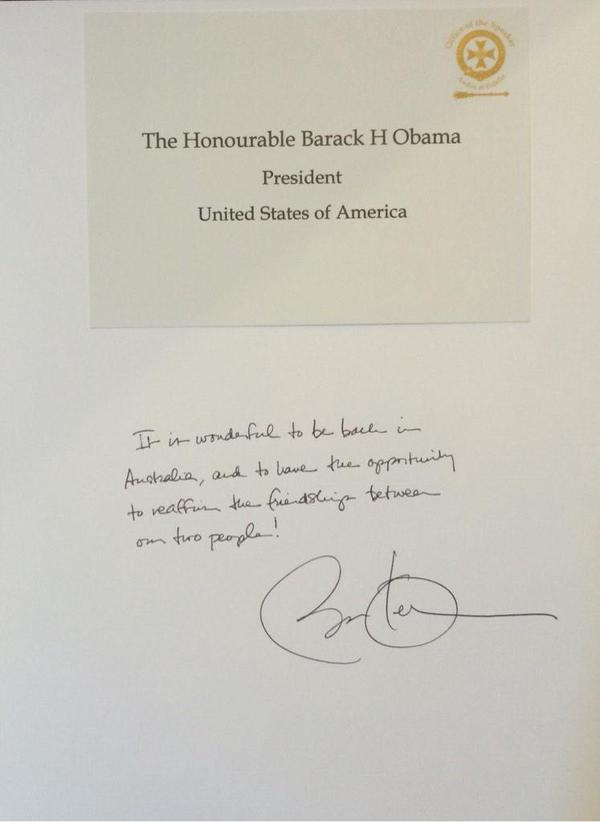 Office of the Speaker
The Honourable Barack H Obama
President
United States of America
It is wonderful to be back in
Australia, and to have the opportunity
to reaffirm the friendship between
our two people!